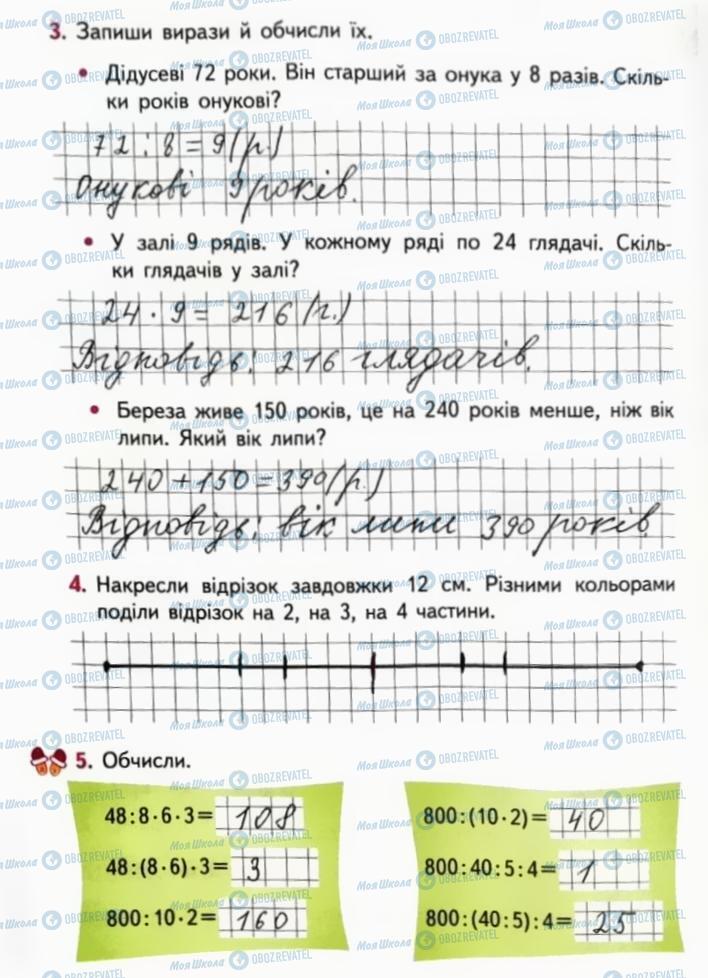 3. Запиши вирази й обчисли їх.
• Дідусеві 72 роки. Він старший за онука у 8 разів. Скіль-
ки років онукові?
72 : 8 = 9 (р.)
Онукові 9 років.
• У залі 9 рядів. У кожному ряді по 24 глядачі. Скіль-
ки глядачів у залі?
24 · 9 = 216 (г.)
Відповідь: 216 глядачів.
• Береза живе 150 років, це на 240 років менше, ніж вік
липи. Який вік липи?
240 + 150 = 390 (р.)
Відповідь: вік липи 390 років.
4. Накресли відрізок завдовжки 12 см. Різними кольорами
поділи відрізок на 2, на 3, на 4 частини.
5. Обчисли.
48:8·6·3= 108
48:(8·6)·3= 3
800:10·2= 160
800:(10·2)= 40
800:40:5:4= 1
800:(40:5):4= 25
Моя Школа OBOZREVATEL